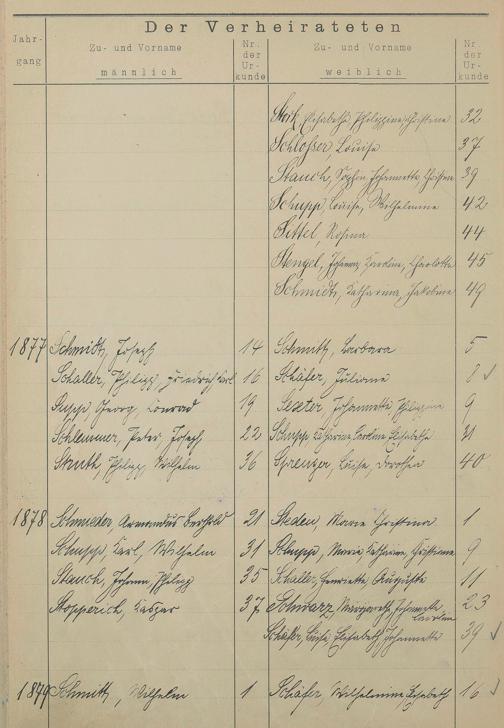 Der Verheirateten
Jahr-
gang
Zu- und Vorname
männlich
Nr.
der
Ur-
kunde
Zu- und Vorname
weiblich
Nr.
der
Ur-
kunde
Elisabeth, Philippine, Christine 32
Schlosser, Louise 37
Stauch, Sophie, Johannette, Christine 39
Schupp, Louise, Wilhelmine 42
Sittel, Rosina 44
Stengel, Johanna, Karoline, Charlotte 45
Schmidt, Katharina, Jakobine 49
1877 Schmidt, Joseph 14 Schmitt, Barbara 5
Schaller, Philipp, Friedrich Karl 16 Schäfer, Juliane 8
Supp Georg, Conrad 19 Johannette Philippine 9
Schlemmer, Peter, Joseph 22 Schupp Katharina, Karoline, Elisabetha 31
Struth, Philipp, Wilhelm 36 Sprenger, Luise, Dorothea 40
1878 Schmieder, Armandus Berthold 21 Steden, Marie Christina 1
Schupp, Karl, Wilhelm 31 Schupp, Marie, Katharina, Christiane 9
Stauch, Johann, Philipp 35 Schaller, Henriette Auguste 11
Stopperich, Kaspar 37 Schwarz, Margaretha, Johannette 23
Karoline
Schäfer, Luise, Elisabeth, Johannette 39
1879 Schmitt, Wilhelm 1 Schäfer, Wilhelmine, Elisabeth 16